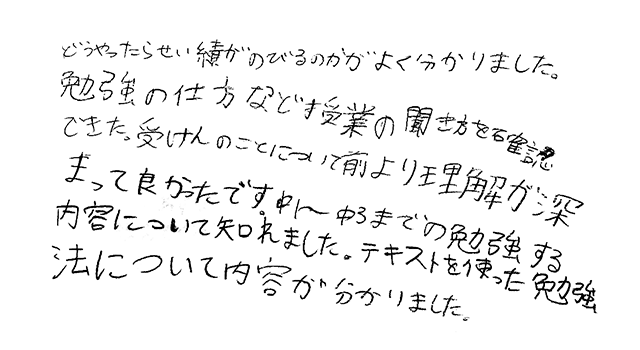 どうやったらせい績がのびるのかがよく分かりました。
勉強の仕方などす受業の聞き方を確認
できた。受けんのことについて前より理解が深
まって良かったです。中1〜中3までの勉強する
内容について知れました。テキストを使った勉強
法について内容が分かりました。